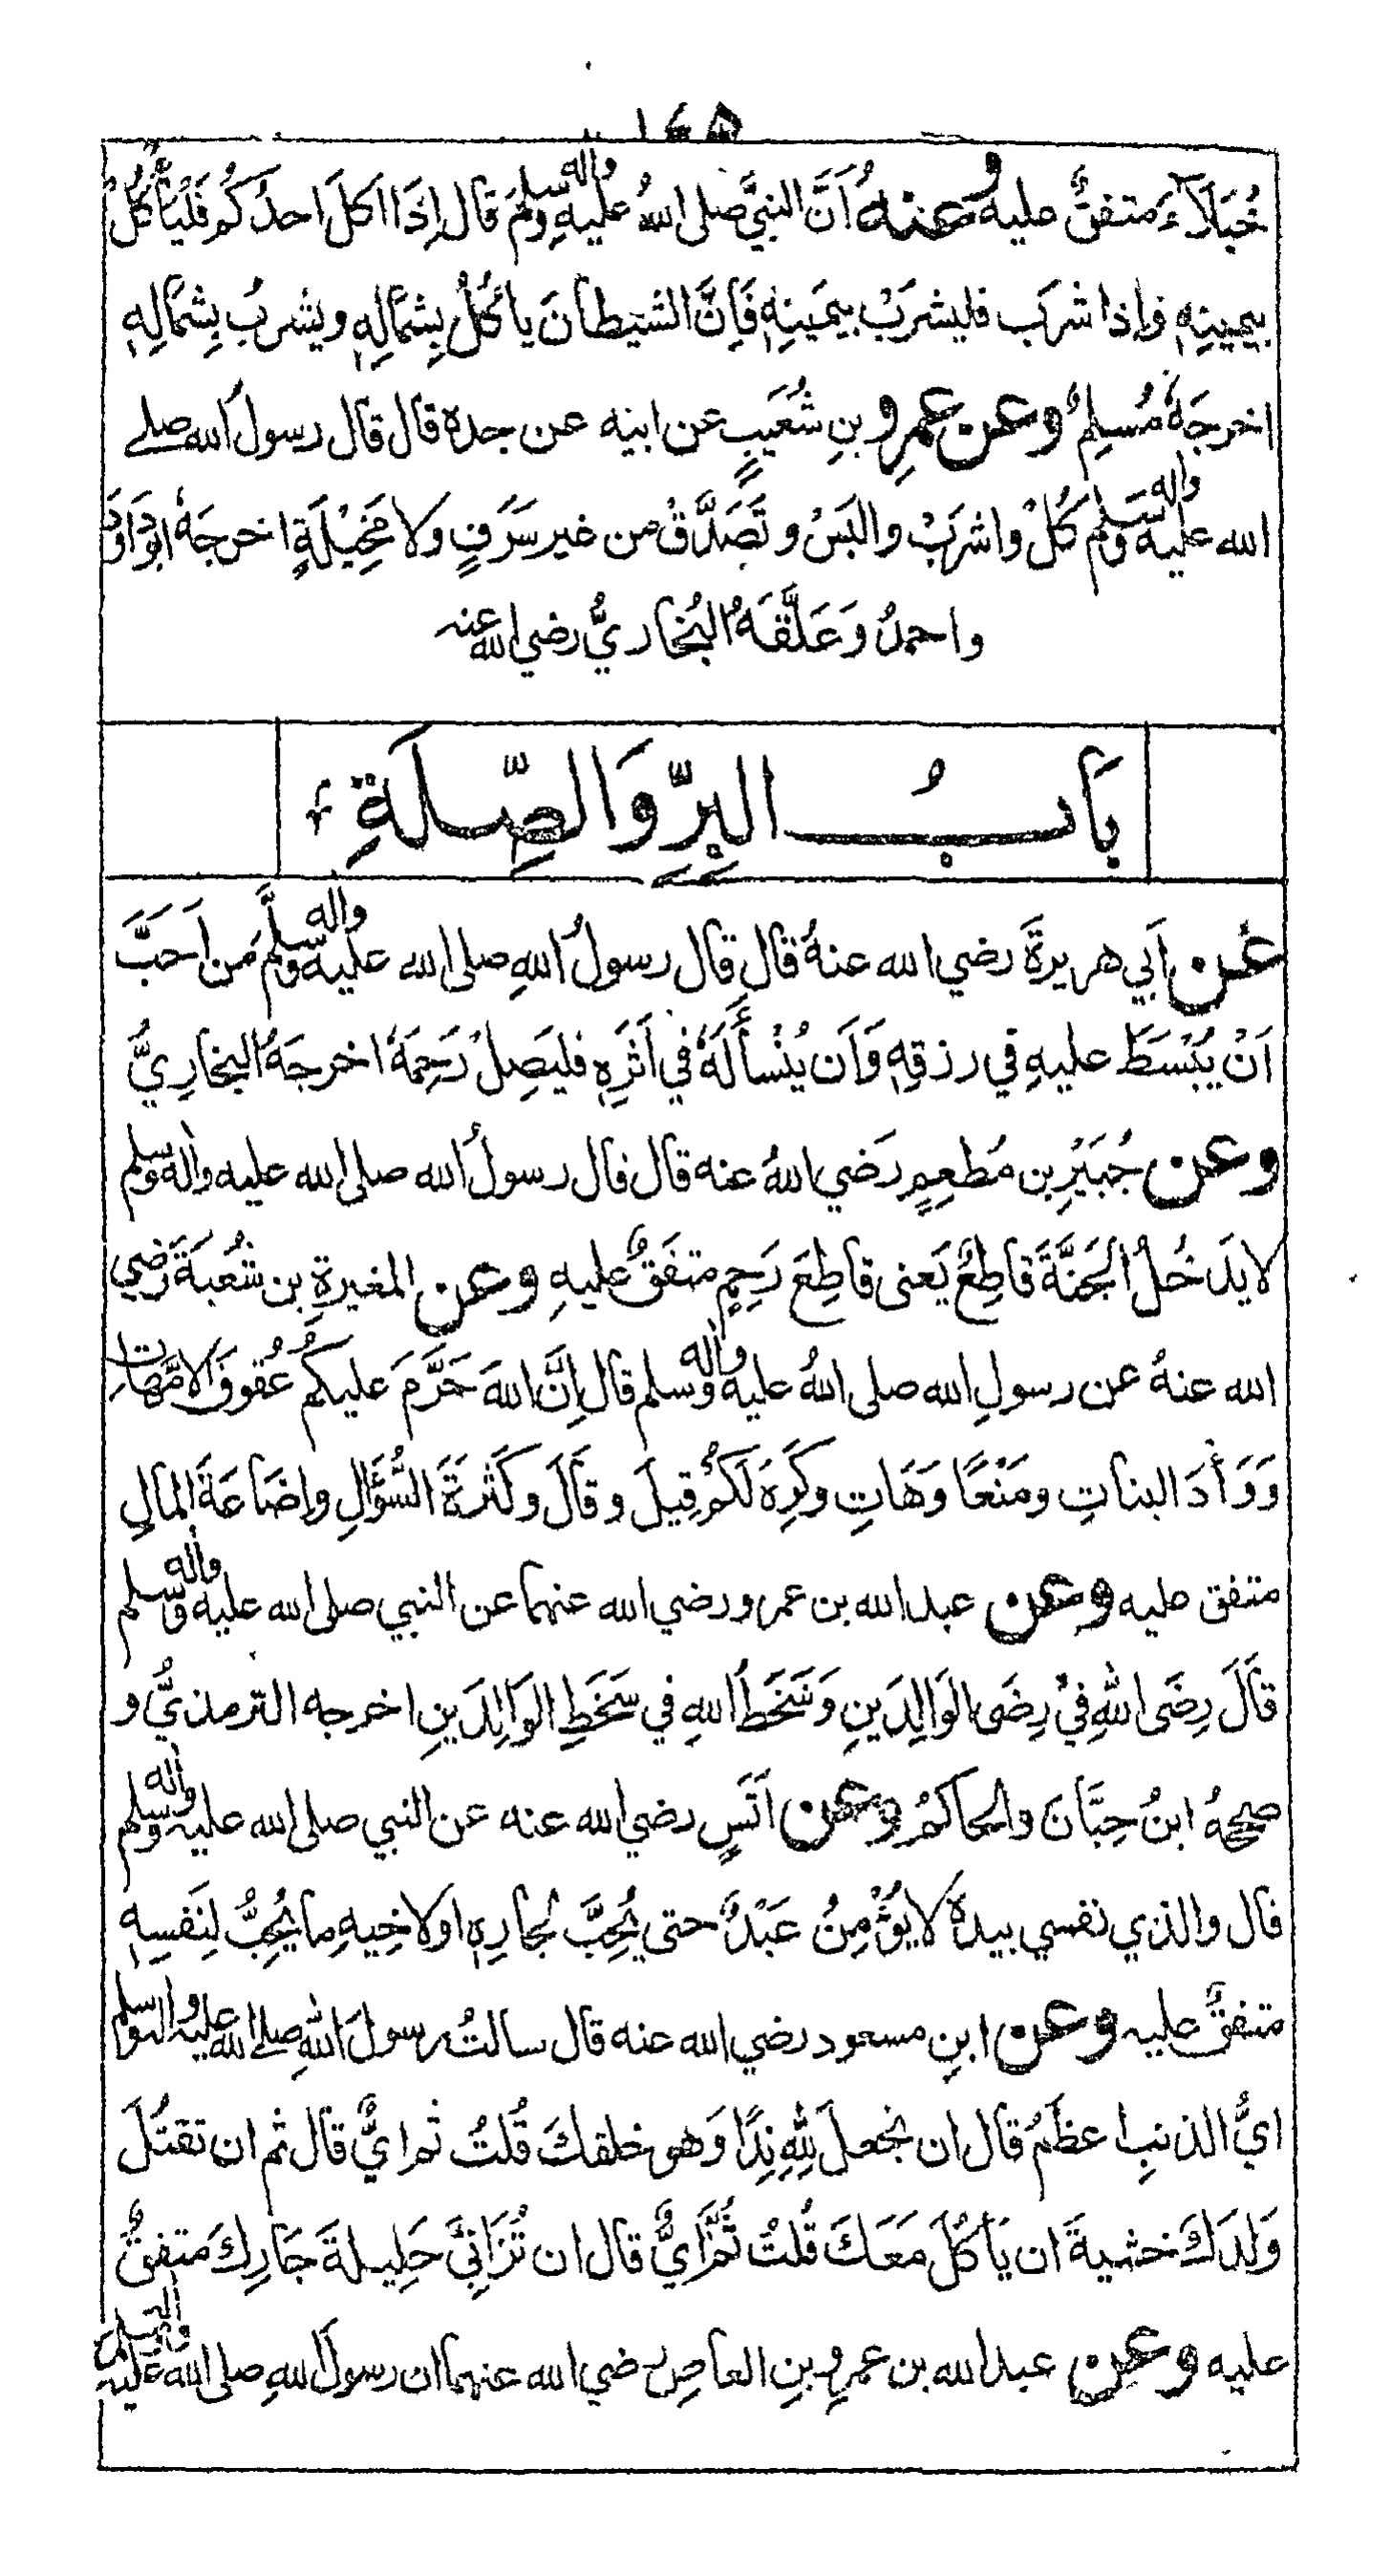 ١٧٥
خُيَلَآءَ متفقٌ عليه وعنهُ اَنَّ النبيَّ صلى اللهُ عليهِ واله وسلم قال اِذَا اكلَ احدُكُم فَلْيَأْكُلْ
بيمينِهٖ وَاِذا شرَب فليشرَبْ بيمَينِهٖ فَاِنَّ الشَّيطانَ يأكُلُ بِشِمَالِهٖ ويشربُ بِشِمَالِهٖ
اخرجَهٗ مُسلِمٌ وعن عمرِو بنِ شُعَيبٍ عن ابيه عن جده قال قال رسولُ الله صلے
الله عليه واله وسَلم كُلْ واشرَبْ والبَسْ وتَصَدَّقْ من غير سَرَفٍ ولا مَخِيْلَةٍ اخرجَهٗ ابوداؤد
واحمدُ وَعَلَّقَهُ البُخاريُّ رضي الله عنہ
بَابُ البِرِّ وَالصِّلَةِ
عن اَبي هريرةَ رضي الله عنهُ قال قال رسولُ اللهِ صلى الله عليه واله وسلَّمَ مَن اَحَبَّ
اَنْ يُبْسَطَ عليهِ في رزقِهٖ وَاَن يُنْسأَلَهٗ في اَثَرِهٖ فليَصِلْ رَحِمَهٗ اخرجَهُ البخارِيُّ
وعن جُبَيْرِ بن مُطعِمٍ رَضي اللهُ عنه قال قال رسولُ الله صلى الله عليه واله وسلم
لا يدَخُلُ الجَنَّةَ قاطِعٌ يَعنى قاطِعَ رَحِمٍ متفَقٌ عليهِ وعن المغيرةِ بن شُعبَةَ رَضي
الله عنهُ عن رسولِ الله صلى اللهُ عليه واله وسلم قال اِنَّ اللهَ حَرَّمَ عليكُم عُقوقَ الامَّهاتِ
وَوَأدَ البناتِ ومَنْعًا وَهَاتِ وكَرِهَ لَكُمْ قِيلَ وقَالَ وكَثرَةَ السُّؤَالِ واِضَاعَةَ المالِ
متفق عليه وعن عبد الله بن عمرو رضي الله عنهما عن النبي صلى الله عليه واله وسلم
قَالَ رِضَى اللهِ فيْ رِضَى الوَالِدَينِ وَسَخَطُ اللهِ في سَخَطِ الوَالِدَينِ اخرجه الترمذيُّ و
صححهُ ابنُ حِبَّانَ والحاكمُ وعن اَنَسٍ رضي الله عنه عن النبي صلى الله عليہ واله وسلم
قال والذي نفسي بيدهٖ لا يُؤْمِنُ عَبْدٌ حتى يُحِبَّ لجارِهٖ اولاخِيهِ ما يُحِبُّ لِنَفسِهٖ
متفقٌ عليہ وعن ابنِ مسعود رضي الله عنه قال سالتُ رسولَ اللهِ صلے الله عليہ والہ وسلم
ايُّ الذنبِ اعظَمُ قال ان تجعلَ لِلّٰهِ نِدًّا وَهو خلقك قُلتُ ثم ايٌّ قال ثم ان تقتُلَ
وَلدَكَ خشيةَ ان يَأكُلَ مَعَكَ قُلتُ ثُمَّ اَيٌّ قال ان تُزَانِيَ حَلِيلةَ جَارِكَ متفقٌ
عليه وعن عبد الله بن عمرِو بنِ العاصِ رضي الله عنهما ان رسولَ اللهِ صلى الله عليہ والہ وسلم